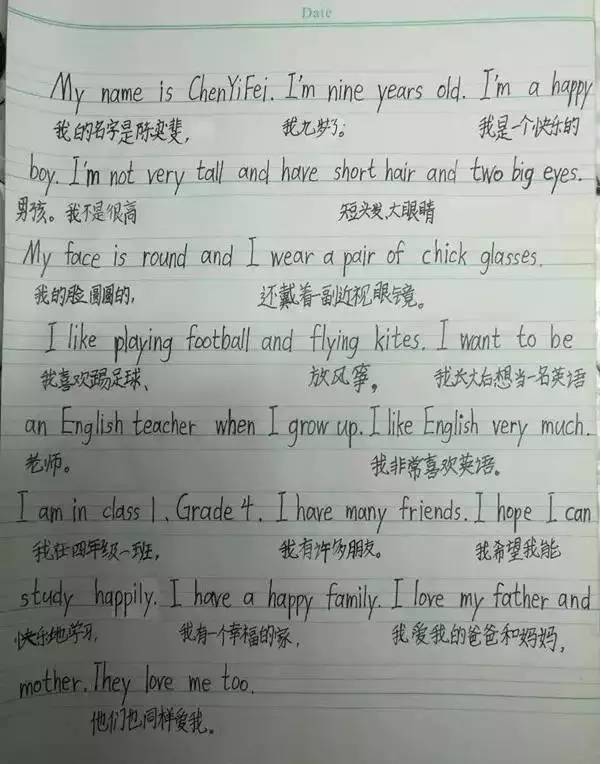 Date
My name is ChenYiFei. I'm nine years old. I'm a happy
我的名字是陈奕斐, 我九岁了。 我是一个快乐的
boy. I'm not very tall and have short hair and two big eyes.
男孩。我不是很高 短头发,大眼睛
My face is round and I wear a pair of chick glasses.
我的脸圆圆的, 还戴着一副近视眼镜。
I like playing football and flying kites. I want to be
我喜欢踢足球、 放风筝, 我长大后想当一名英语
an English teacher when I grow up. I like English very much.
老师。 我非常喜欢英语。
I am in class 1、Grade 4. I have many friends. I hope I can
我在四年级一班, 我有许多朋友。 我希望我能
study happily. I have a happy family. I love my father and
快乐地学习, 我有一个幸福的家, 我爱我的爸爸和妈妈,
mother. They love me too.
他们也同样爱我。